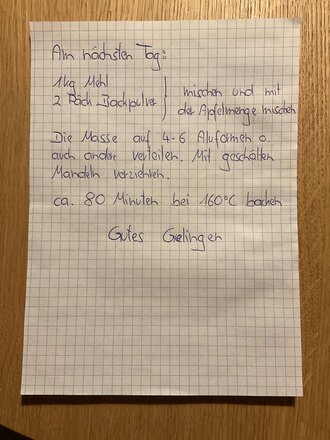 Am nächsten Tag:
1kg Mehl } mischen und mit
2 Päck Backpulver } der Apfelmenge mischen
Die Masse auf 4-6 Aluformen o.
auch andere verteilen. Mit geschälten
Mandeln verziehren.
ca. 80 Minuten bei 160°C backen
Gutes Gelingen